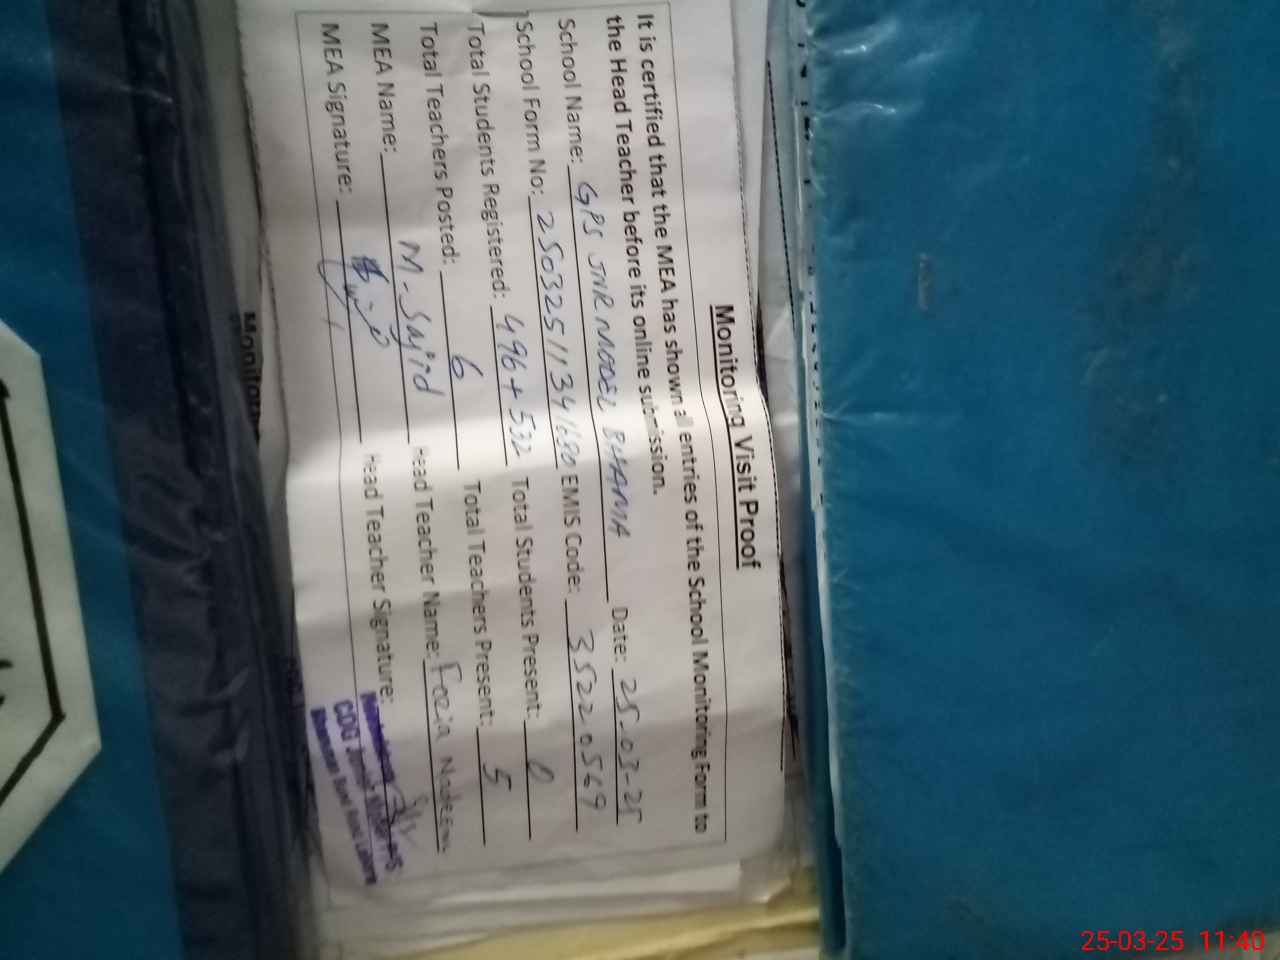 Monitoring Visit Proof
It is certified that the MEA has shown all entries of the School Monitoring Form to
the Head Teacher before its online submission.
School Name: GPS JNR MODEL BHAMA Date: 25-03-25
School Form No: 25032511341680 EMIS Code: 35220569
Total Students Registered: 496+532 Total Students Present: 0
Total Teachers Posted: 6 Total Teachers Present: 5
MEA Name: M-Sajid Head Teacher Name: Fozia Nadeem
MEA Signature: Head Teacher Signature:
CDG Junior
Lahore
Monitori
25-03-25 11:40